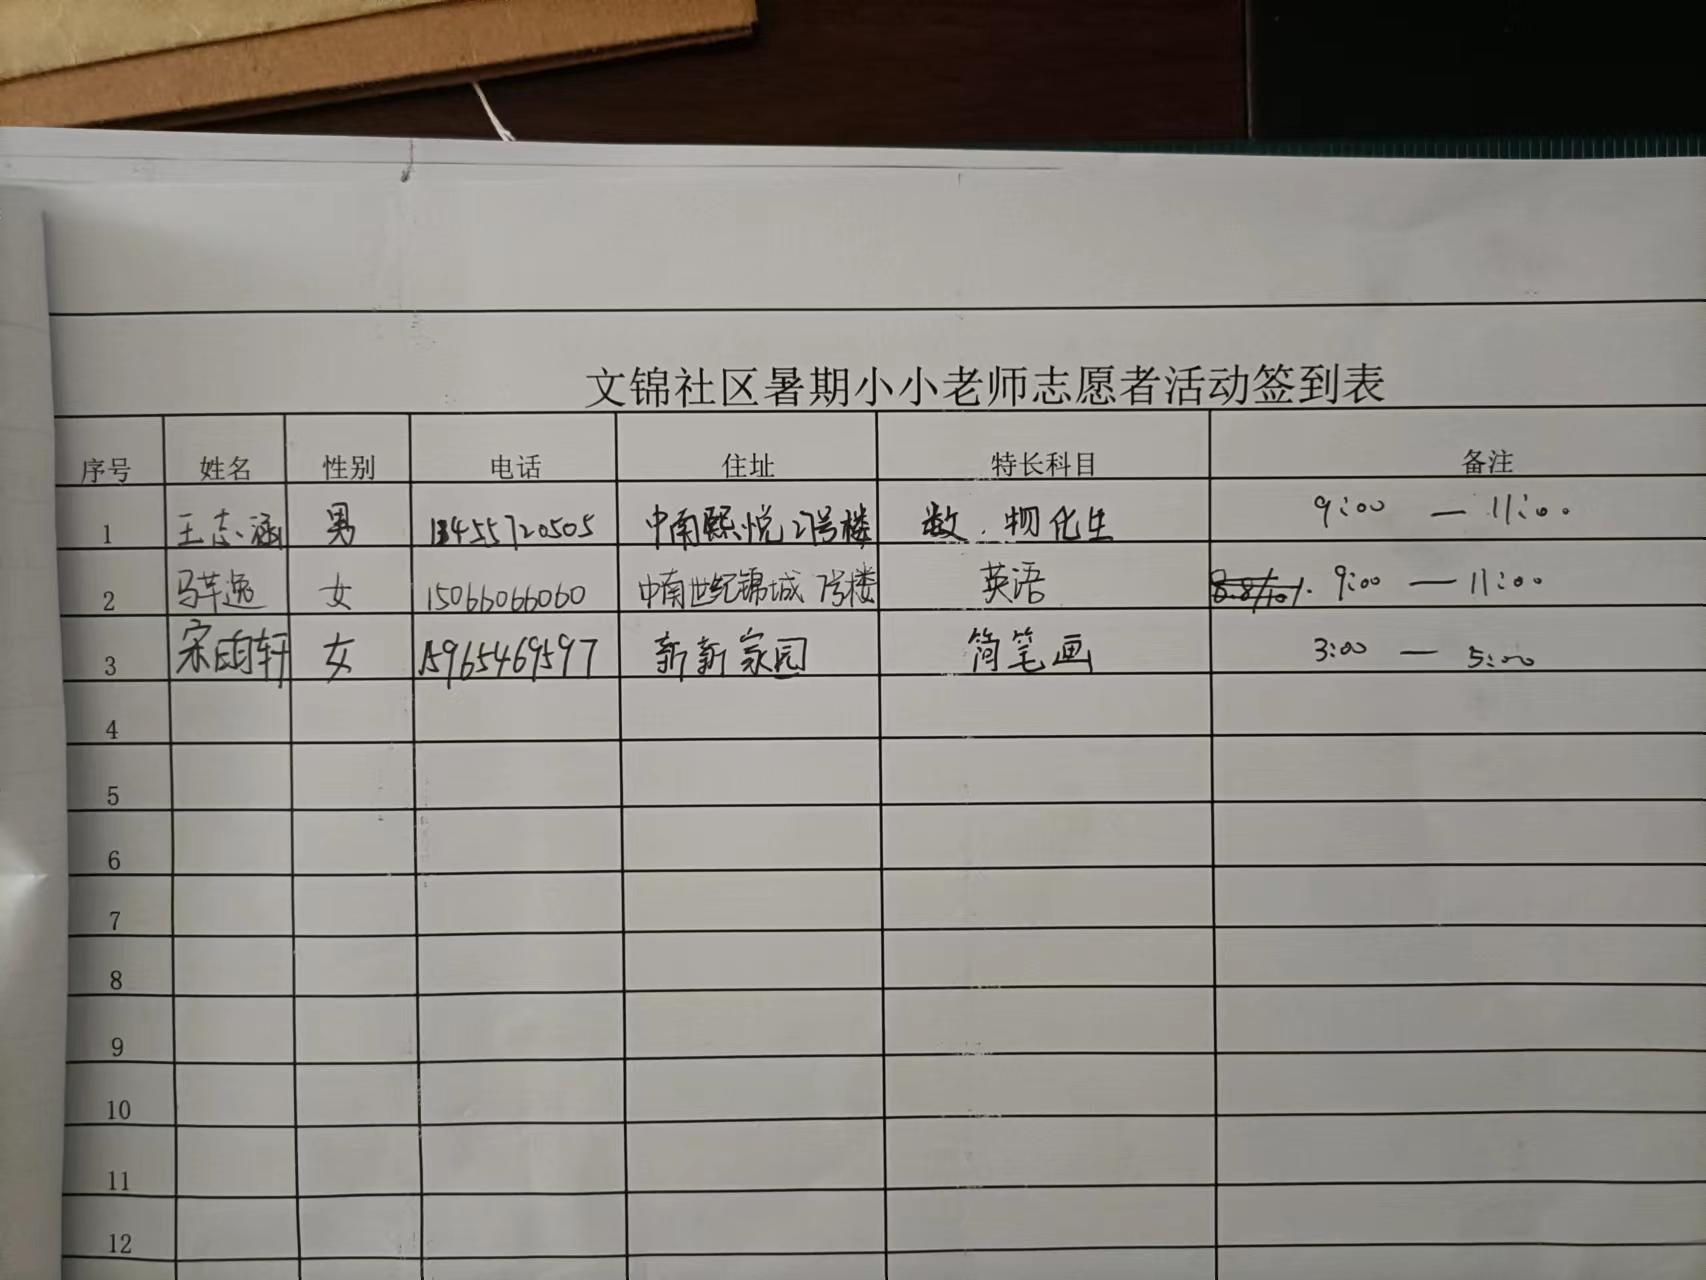 文锦社区暑期小小老师志愿者活动签到表
序号 姓名 性别 电话 住址 特长科目 备注
1 王志涵 男 13455720505 中南熙悦27号楼 数、物化生 9:00 — 11:00
2 马芊逸 女 15066066060 中南世纪锦城 7号楼 英语 9:00 — 11:00
3 宋雨轩 女 15965469597 新新家园 简笔画 3:00 — 5:00
4
5
6
7
8
9
10
11
12